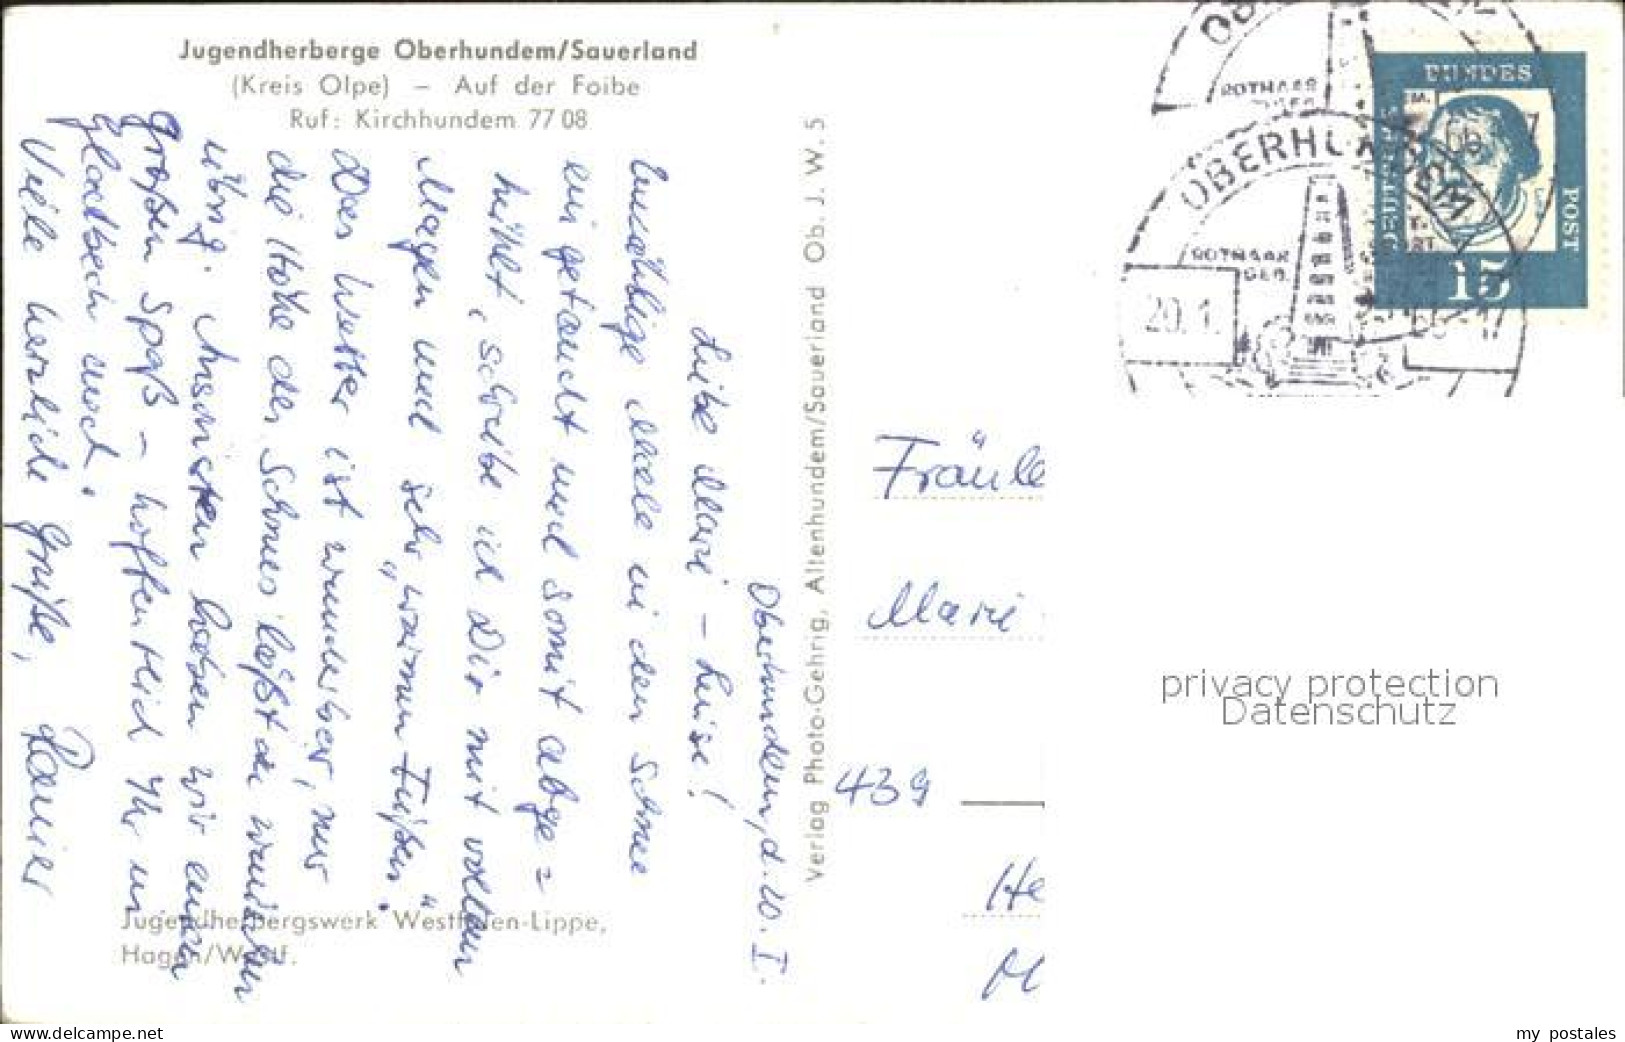 Jugendherberge Oberhundem/Sauerland
(Kreis Olpe) – Auf der Foibe
Ruf: Kirchhundem 77 08
Oberhundem, d. 20. I.
Liebe Marie-Luise!
Unzählige Male in den Schnee
eingetaucht und somit abge=
kühlt, schreibe ich Dir mit vollem
Magen und sehr „warmen Füßen“.
Das Wetter ist wunderbar, nur
die Höhe des Schnees läßt zu wünschen
übrig. Ansonsten haben wir einen
großen Spaß – hoffentlich Ihr in
Gladbach auch.
Viele herzliche Grüße,
Rainer
Jugendherbergswerk Westfalen-Lippe,
Hagen/Westf.
Verlag Photo-Gehrig, Altenhundem/Sauerland Ob. J. W. 5
OBERHUNDEM
ROTHAAR
GEB.
20. 1.
BUNDES
POST
15
Fräule
Marie
439
He
M
privacy protection
Datenschutz
www.delcampe.net
my_postales